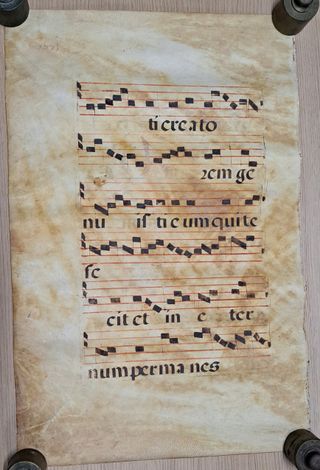 ti creato
rem ge
nu is ti cum qui te
fe
cit et in e ter
num per ma nes